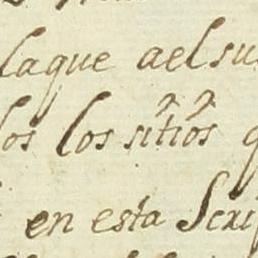 laque ael su
los los sitiós
en esta Scri